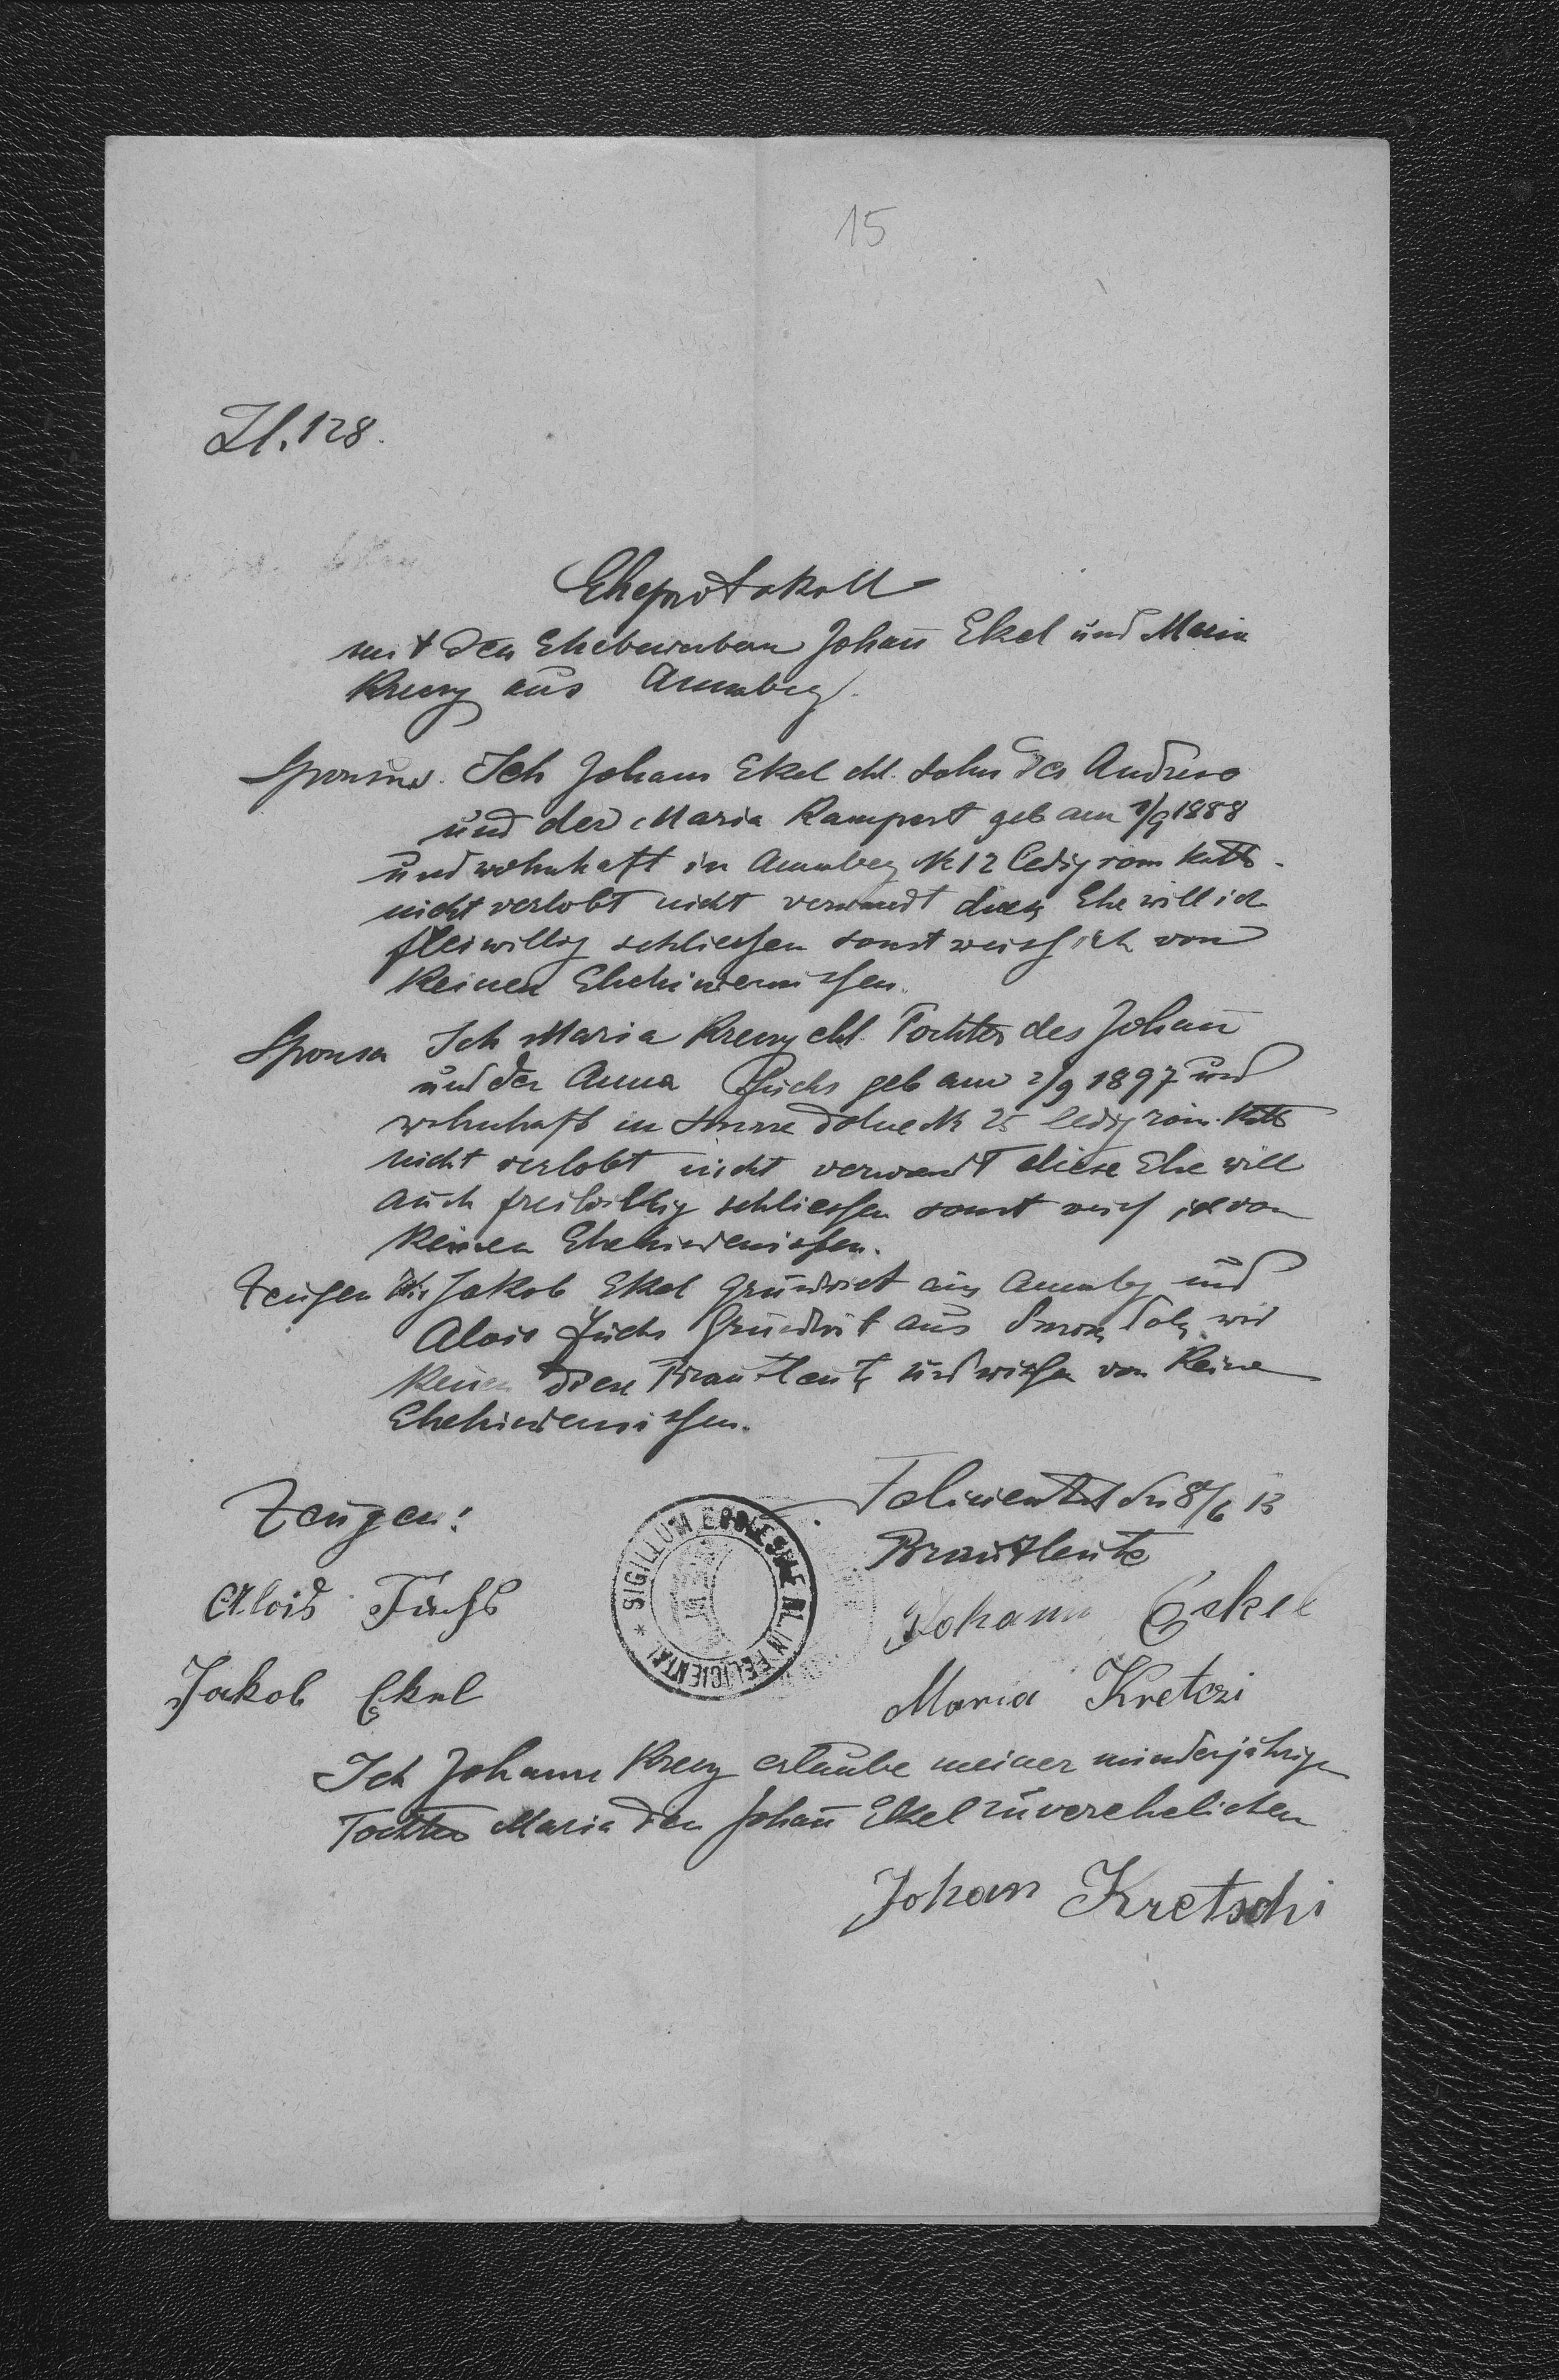 15
Zl. 128.
Eheprotokoll
mit den Ehebewerbern Johann Ekel und Maria
Kreuz aus Annaberg.
Sponsus. Ich Johann Ekel ehl. Sohn des Andreas
und der Maria Rampert geb am 1/9 1888
und wohnhaft in Annaberg N 12 ledig röm kath.
nicht verlobt nicht verwandt diese Ehe will ich
freiwillig schliessen sonst weiss ich von
keinen Ehehindernissen.
Sponsa Ich Maria Kreuz ehl. Tochter des Johann
und der Anna Fuchs geb am 2/9 1897 und
wohnhaft in N 25 ledig röm. kath
nicht verlobt nicht verwandt diese Ehe will
auch freiwillig schliessen sonst weiss ich von
keinen Ehehindernissen.
Zeugen Wir Jakob Ekel Grundwirt aus Annabg und
Alois Fuchs Grundwirt aus wir
kennen diese Brautleute und wissen von keine
Ehehindernissen.
Zeugen:
Alois Fuchs
Jakob Ekel
SIGILLUM ECCLESIAE R.L. IN FELICIENTAL
Felicienthal den 8/6 13
Brautleute
Johann Eckel
Maria Kretczi
Ich Johann Kreuz erlaube meiner minderjährigen
Tochter Maria den Johann Ekel zu verehelichen
Johan Kretschi